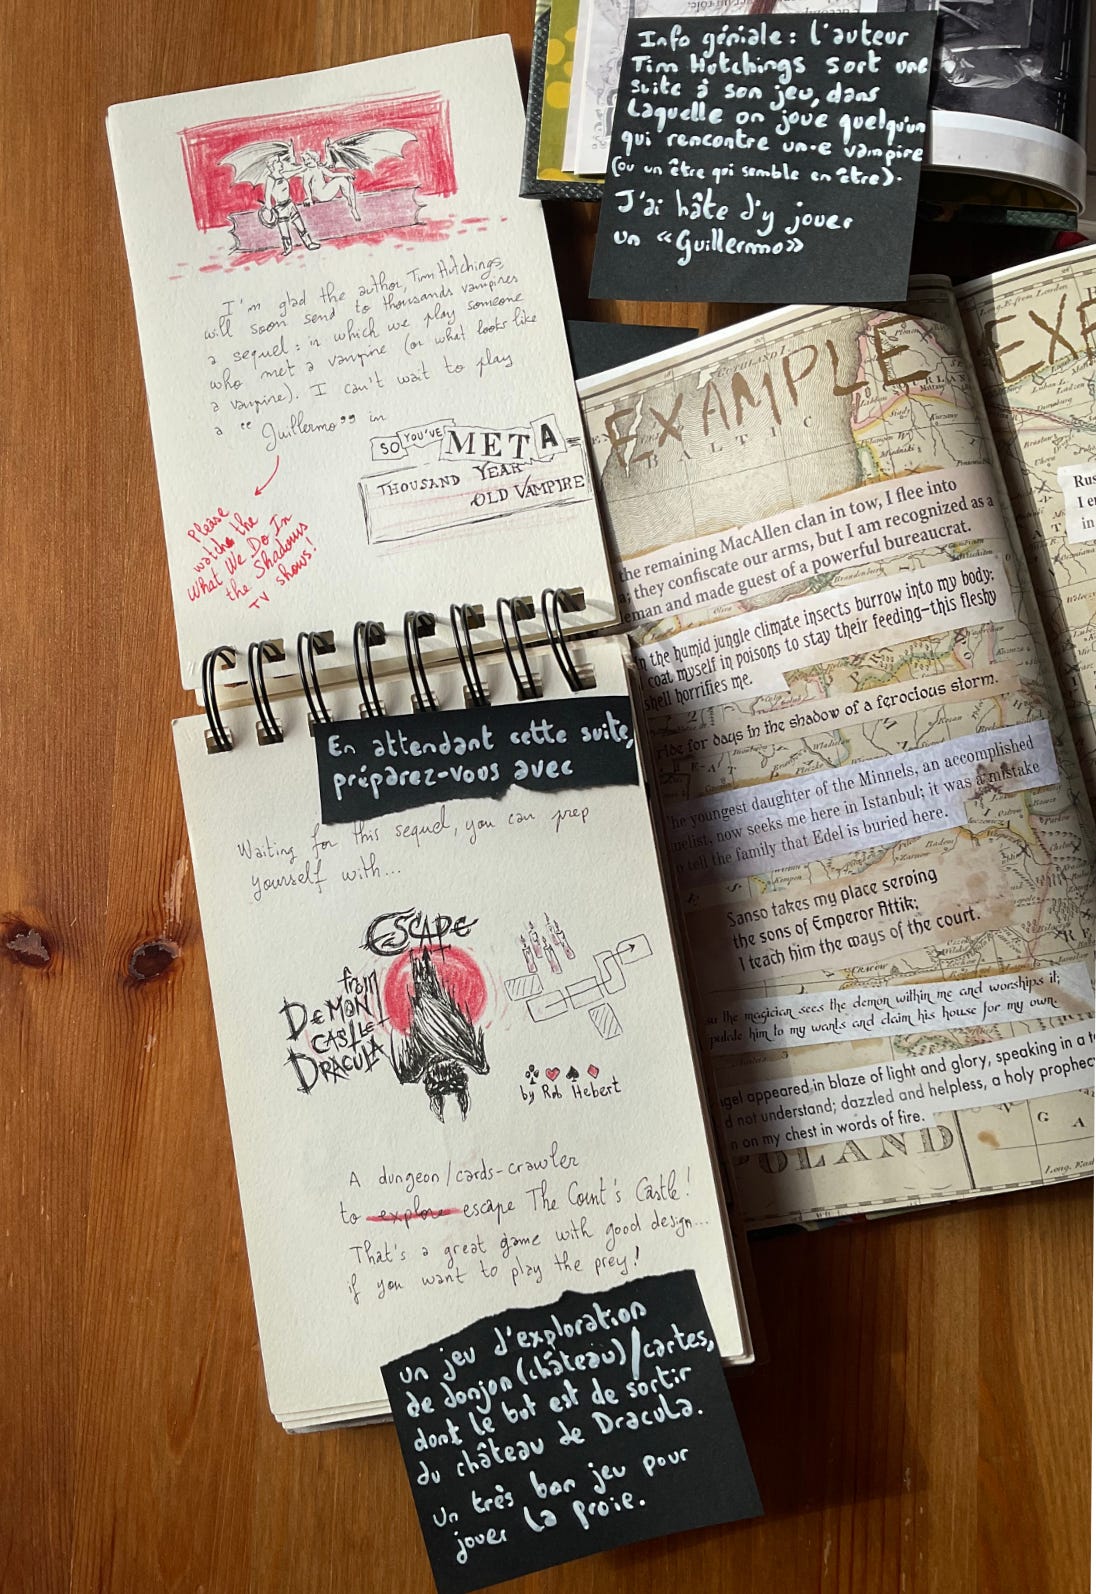 Info géniale : l'auteur
Tim Hutchings sort une
suite à son jeu, dans
laquelle on joue quelqu'un
qui rencontre un·e vampire
(ou un être qui semble en être).
J'ai hâte d'y jouer
un «Guillermo»
I'm glad the author, Tim Hutchings,
will soon send to thousands vampires
a sequel : in which we play someone
who met a vampire (or what looks like
a vampire). I can't wait to play
a "Guillermo" in
SO YOU'VE MET A
THOUSAND YEAR
OLD VAMPIRE
Please
watch the
What We Do In
the Shadows
TV shows!
En attendant cette suite,
préparez-vous avec
Waiting for this sequel, you can prep
yourself with...
ESCAPE
from
DEMON
CASTLE
DRACULA
by Rob Hebert
A dungeon/cards-crawler
to explore escape The Count's Castle!
That's a great game with good design...
if you want to play the prey!
un jeu d'exploration
de donjon (château)/cartes,
dont le but est de sortir
du château de Dracula.
Un très bon jeu pour
jouer la proie.
EXAMPLE
BALTIC
the remaining MacAllen clan in tow, I flee into
; they confiscate our arms, but I am recognized as a
eman and made guest of a powerful bureaucrat.
In the humid jungle climate insects burrow into my body;
coat myself in poisons to stay their feeding—this fleshy
shell horrifies me.
ride for days in the shadow of a ferocious storm.
The youngest daughter of the Minnels, an accomplished
uelist, now seeks me here in Istanbul; it was a mistake
tell the family that Edel is buried here.
Sanso takes my place serving
the sons of Emperor Attik;
I teach him the ways of the court.
the magician sees the demon within me and worships it;
him to my wants and claim his house for my own.
ngel appeared in blaze of light and glory, speaking in a
d not understand; dazzled and helpless, a holy prophec
n on my chest in words of fire.
POLAND
EX
Rus
I e
in